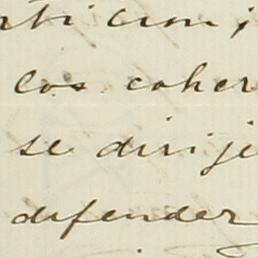 rticion;
los coher
se dirije
defender